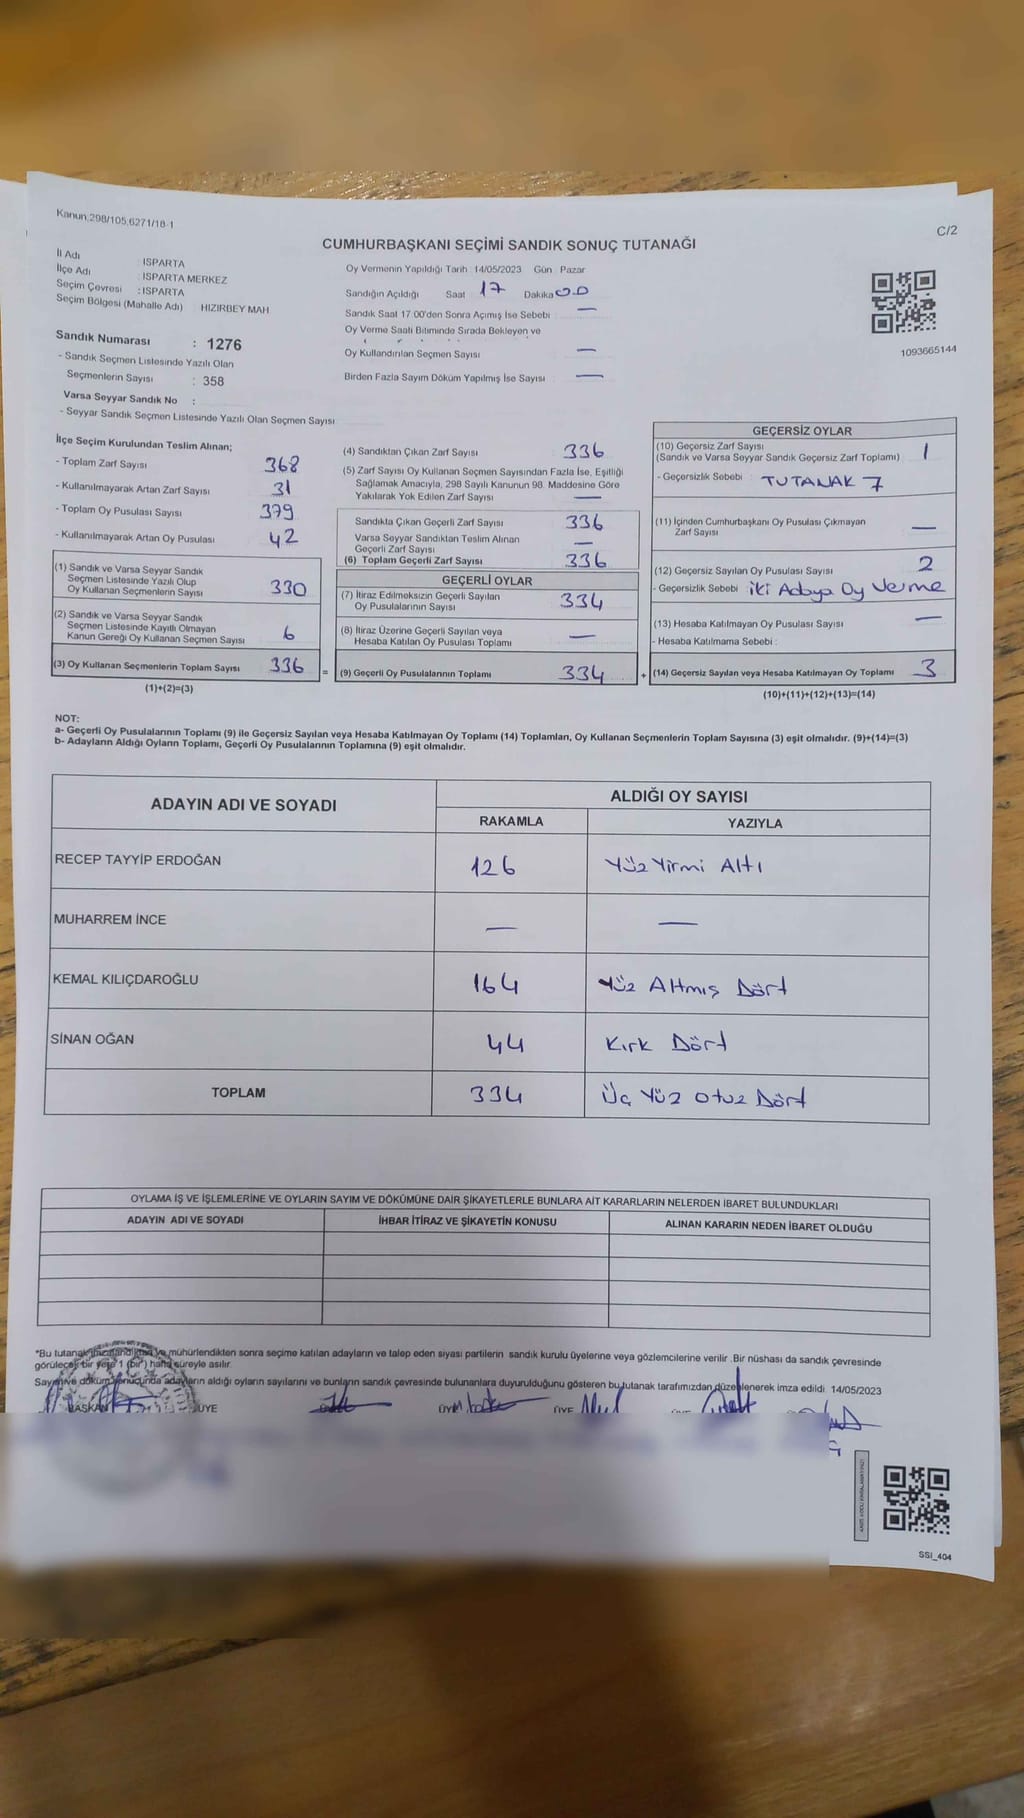 Kanun,298/105,6271/18-1
C/2
CUMHURBAŞKANI SEÇİMİ SANDIK SONUÇ TUTANAĞI
İl Adı : ISPARTA
İlçe Adı : ISPARTA MERKEZ
Seçim Çevresi : ISPARTA
Seçim Bölgesi (Mahalle Adı) HIZIRBEY MAH
Sandık Numarası : 1276
- Sandık Seçmen Listesinde Yazılı Olan
Seçmenlerin Sayısı : 358
Varsa Seyyar Sandık No :
- Seyyar Sandık Seçmen Listesinde Yazılı Olan Seçmen Sayısı
Oy Vermenin Yapıldığı Tarih : 14/05/2023 Gün : Pazar
Sandığın Açıldığı Saat 17 Dakika 00
Sandık Saat 17.00'den Sonra Açımış İse Sebebi : —
Oy Verme Saati Bitiminde Sırada Bekleyen ve
Oy Kullandırılan Seçmen Sayısı —
Birden Fazla Sayım Döküm Yapılmış İse Sayısı —
1093665144
İlçe Seçim Kurulundan Teslim Alınan;
- Toplam Zarf Sayısı 368
- Kullanılmayarak Artan Zarf Sayısı 31
- Toplam Oy Pusulası Sayısı 379
- Kullanılmayarak Artan Oy Pusulası 42
(1) Sandık ve Varsa Seyyar Sandık
Seçmen Listesinde Yazılı Olup
Oy Kullanan Seçmenlerin Sayısı 330
(2) Sandık ve Varsa Seyyar Sandık
Seçmen Listesinde Kayıtlı Olmayan
Kanun Gereği Oy Kullanan Seçmen Sayısı 6
(3) Oy Kullanan Seçmenlerin Toplam Sayısı 336 =
(1)+(2)=(3)
(4) Sandıktan Çıkan Zarf Sayısı 336
(5) Zarf Sayısı Oy Kullanan Seçmen Sayısından Fazla İse, Eşitliği
Sağlamak Amacıyla, 298 Sayılı Kanunun 98. Maddesine Göre
Yakılarak Yok Edilen Zarf Sayısı —
Sandıkta Çıkan Geçerli Zarf Sayısı 336
Varsa Seyyar Sandıktan Teslim Alınan
Geçerli Zarf Sayısı —
(6) Toplam Geçerli Zarf Sayısı 336
GEÇERLİ OYLAR
(7) İtiraz Edilmeksizin Geçerli Sayılan
Oy Pusulalarının Sayısı 334
(8) İtiraz Üzerine Geçerli Sayılan veya
Hesaba Katılan Oy Pusulası Toplamı —
(9) Geçerli Oy Pusulalarının Toplamı 334 +
GEÇERSİZ OYLAR
(10) Geçersiz Zarf Sayısı
(Sandık ve Varsa Seyyar Sandık Geçersiz Zarf Toplamı) 1
- Geçersizlik Sebebi : TUTANAK 7
(11) İçinden Cumhurbaşkanı Oy Pusulası Çıkmayan
Zarf Sayısı —
(12) Geçersiz Sayılan Oy Pusulası Sayısı 2
- Geçersizlik Sebebi : iki Adaya Oy Verme
(13) Hesaba Katılmayan Oy Pusulası Sayısı —
- Hesaba Katılmama Sebebi :
(14) Geçersiz Sayılan veya Hesaba Katılmayan Oy Toplamı 3
(10)+(11)+(12)+(13)=(14)
NOT:
a- Geçerli Oy Pusulalarının Toplamı (9) ile Geçersiz Sayılan veya Hesaba Katılmayan Oy Toplamı (14) Toplamları, Oy Kullanan Seçmenlerin Toplam Sayısına (3) eşit olmalıdır. (9)+(14)=(3)
b- Adayların Aldığı Oyların Toplamı, Geçerli Oy Pusulalarının Toplamına (9) eşit olmalıdır.
ADAYIN ADI VE SOYADI ALDIĞI OY SAYISI
RAKAMLA YAZIYLA
RECEP TAYYİP ERDOĞAN 126 Yüz Yirmi Altı
MUHARREM İNCE — —
KEMAL KILIÇDAROĞLU 164 Yüz Altmış Dört
SİNAN OĞAN 44 Kırk Dört
TOPLAM 334 Üç Yüz Otuz Dört
OYLAMA İŞ VE İŞLEMLERİNE VE OYLARIN SAYIM VE DÖKÜMÜNE DAİR ŞİKAYETLERLE BUNLARA AİT KARARLARIN NELERDEN İBARET BULUNDUKLARI
ADAYIN ADI VE SOYADI İHBAR İTİRAZ VE ŞİKAYETİN KONUSU ALINAN KARARIN NEDEN İBARET OLDUĞU
*Bu tutanak imzalandıktan ve mühürlendikten sonra seçime katılan adayların ve talep eden siyasi partilerin sandık kurulu üyelerine veya gözlemcilerine verilir .Bir nüshası da sandık çevresinde
görülecek bir yere 1 (bir) hafta süreyle asılır.
Sayım ve döküm sonucunda adayların aldığı oyların sayılarını ve bunların sandık çevresinde bulunanlara duyurulduğunu gösteren bu tutanak tarafımızdan düzenlenerek imza edildi. 14/05/2023
BAŞKAN ÜYE ÜYE ÜYE
SSI_404